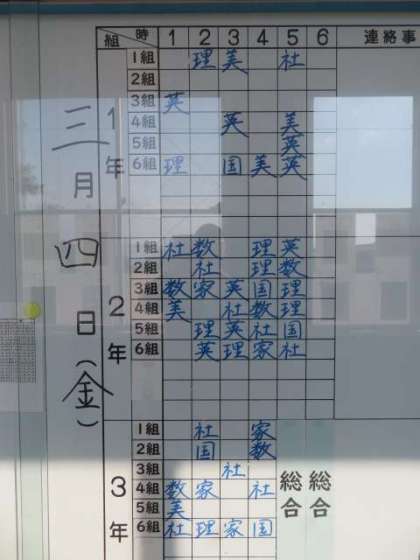 組 時 1 2 3 4 5 6 連絡事
三月四日(金)
1年
1組 理 美 社
2組
3組 英
4組 英 美
5組 英
6組 理 国 美 英
2年
1組 社 数 理 英
2組 社 理 数
3組 数 家 英 国 理
4組 美 社 数 理
5組 理 英 社 国
6組 英 理 家 社
3年
1組 社 家
2組 国 数
3組 社
4組 数 家 社
5組 美
6組 社 理 家 国
総合 総合